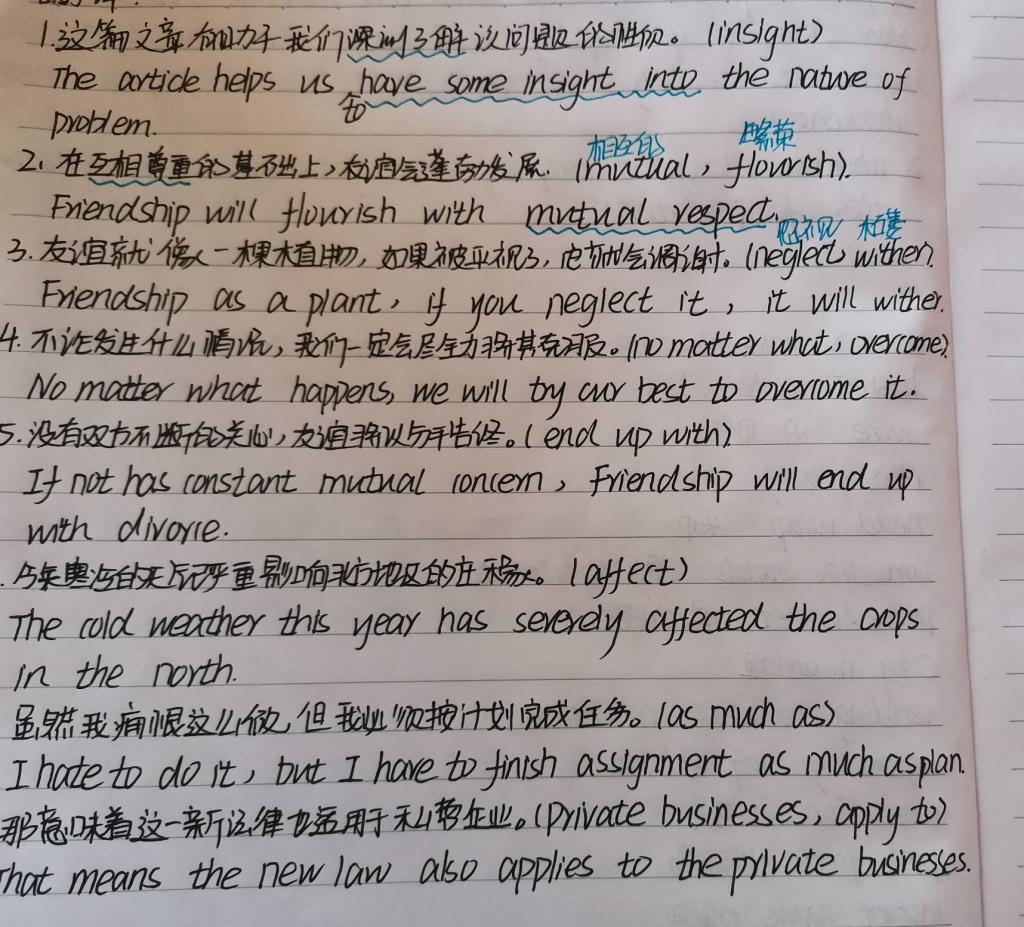 1.这篇文章有助于我们深刻了解该问题的性质。(insight)
The article helps us have some insight into the nature of
to
problem.
相互的 繁荣
2.在互相尊重的基础上,友谊会蓬勃发展.(mutual, flourish).
Friendship will flourish with mutual respect.
忽视 枯萎
3.友谊就像一棵植物,如果被忽视了,它就会凋谢.(neglect, wither).
Friendship as a plant, if you neglect it, it will wither.
4.不论发生什么情况,我们一定会尽全力将其克服。(no matter what, overcome).
No matter what happens, we will try our best to overcome it.
5.没有双方不断的关心,友谊将以分手告终。(end up with)
If not has constant mutual concern, Friendship will end up
with divorce.
.今年寒冷的天气严重影响北方地区的庄稼。(affect)
The cold weather this year has severely affected the crops
in the north.
虽然我痛恨这么做,但我必须按计划完成任务。(as much as)
I hate to do it, but I have to finish assignment as much as plan.
那意味着这一新法律也适用于私营企业。(private businesses, apply to)
That means the new law also applies to the private businesses.